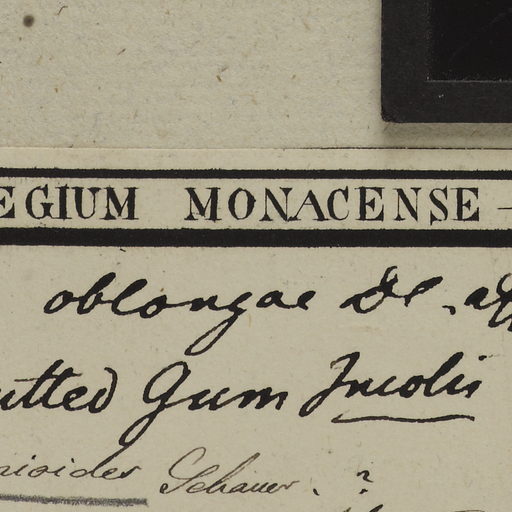 EGIUM MONACENSE –
oblongae DC. aff
utted Gum Incolis
nioides Schauer. ?